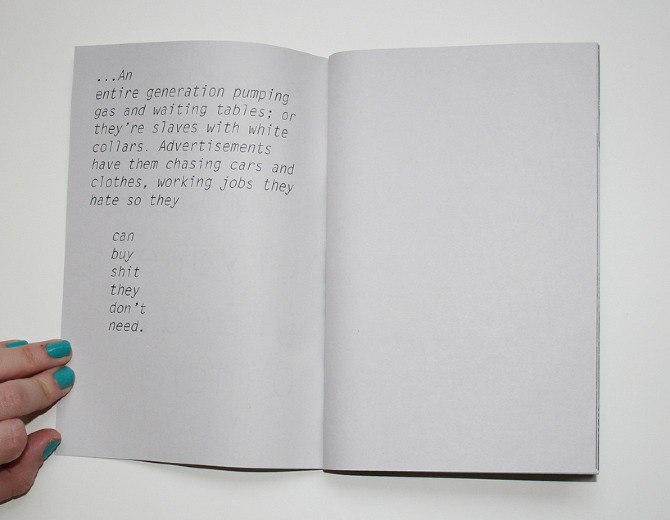 ...An
entire generation pumping
gas and waiting tables; or
they're slaves with white
collars. Advertisements
have them chasing cars and
clothes, working jobs they
hate so they
can
buy
shit
they
don't
need.